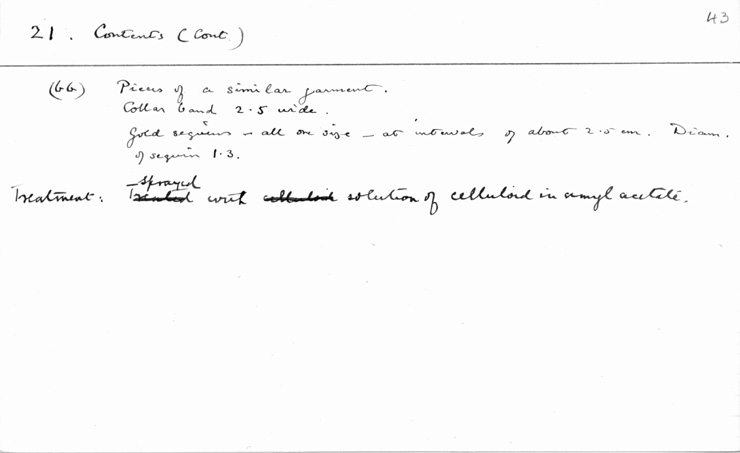 43
21. Contents (Cont)
(GG) Pieces of a similar garment.
Collar band 2.5 wide.
Gold sequins – all one size – at intervals of about 2.5 cm. Diam.
of sequin 1.3.
sprayed
Treatment: Treated with celluloid solution of celluloid in amyl acetate.